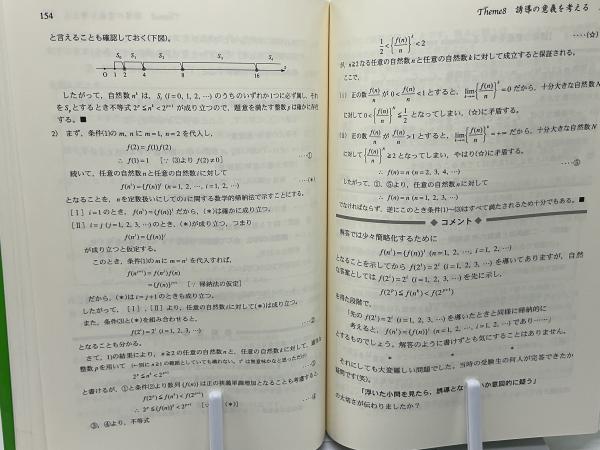 154
と言えることも確認しておく(下図)。
S₀ S₁ S₂ S₃
O 1 2 4 8 16 s
したがって、自然数 nᵏ は、Sᵢ (i=0, 1, 2, …) のうちのいずれか1つに必ず属し、それ
を Sₚ とするとき不等式 2ᵖ≦nᵏ<2ᵖ⁺¹ が成り立つので、題意を満たす整数 p は確かに存在
する。■
2) まず、条件(1)の m, n に m=1, n=2 を代入し、
f(2)=f(1)f(2)
∴ f(1)=1 [∵ (3)より f(2)≠0] …①
続いて、任意の自然数 n と任意の自然数 i に対して
f(nⁱ)={f(n)}ⁱ (n=1, 2, …, i=1, 2, …) …(*)
となることを、n を定数扱いにしての i に関する数学的帰納法で示すことにする。
[Ⅰ] i=1 のとき、f(n¹)={f(n)}¹ だから、(*)は確かに成り立つ。
[Ⅱ] i=j (j=1, 2, 3, …) のとき、(*)が成り立つ、つまり
f(nʲ)={f(n)}ʲ
が成り立つと仮定する。
このとき、条件(1)の m に m=nʲ を代入すれば、
f(nʲ⁺¹)=f(nʲ)f(n)
={f(n)}ʲ⁺¹ [∵ 帰納法の仮定]
だから、(*)は i=j+1 のときも成り立つ。
したがって、[Ⅰ]、[Ⅱ]より、任意の自然数 i に対して(*)は成り立つ。
また、条件(3)と(*)を組み合わせると、
f(2ⁱ)=2ⁱ (i=1, 2, 3, …) …②
となることも分かる。
さて、1)の結果により、n≧2 の任意の自然数 n と、任意の自然数 k に対して、適当な
整数 p を用いて
2ᵖ≦nᵏ<2ᵖ⁺¹ …③
と書けるが、①と条件(2)より数列{f(n)}は正の狭義単調増加となることも考慮すると
f(2ᵖ)≦f(nᵏ)<f(2ᵖ⁺¹)
∴ 2ᵖ≦{f(n)}ᵏ<2ᵖ⁺¹ (*)] …④
③、④より、不等式
Theme8 誘導の意義を考える
1/2<{f(n)/n}ᵏ<2 …(☆)
が、n≧2 なる任意の自然数 n と任意の自然数 k に対して成立すると保証される。
ここで、
(i) 正の数 f(n)/n が 0<f(n)/n<1 とすると、lim{f(n)/n}ᴺ=0 だから、十分大きな自然数 N
に対して 0<{f(n)/n}ᴺ≦1/2 となってしまい、(☆)に矛盾する。
(ii) 正の数 f(n)/n が f(n)/n>1 とすると、lim{f(n)/n}ᴺ=+∞ だから、十分大きな自然数 N
に対して {f(n)/n}ᴺ≧2 となってしまい、やはり(☆)に矛盾する。
∴ f(n)=n (n=2, 3, 4, …) …⑤
したがって、①、⑤より、任意の自然数 n に対して
f(n)=n (n=1, 2, 3, …)
でなければならず、逆にこのとき条件(1)～(3)はすべて満たされるため十分でもある。■
◆ コメント ◆
解答では少々簡略化するために
f(nⁱ)={f(n)}ⁱ (n=1, 2, …, i=1, 2, …)
となることを示してから f(2ⁱ)=2ⁱ (i=1, 2, 3, …) を導いてありますが、自然
な答案としては f(2ⁱ)=2ⁱ (i=1, 2, 3, …) を先に示し、
f(2ᵖ)≦f(nᵏ)<f(2ᵖ⁺¹)
を得た段階で、
「先の f(2ⁱ)=2ⁱ (i=1, 2, 3, …) を導いたときと同様に帰納的に
考えると、f(nⁱ)={f(n)}ⁱ (n=1, 2, …, i=1, 2, …)であり……」
とするものでしょう。解答のように書けずとも気にすることはありません。
* * *
それにしても大変厳しい問題でした。当時の受験生の何人が完答できたか
疑問です(笑)。
「浮いた小問を見たら、誘導とな 意図的に疑う」
の大切さが伝わりましたか?